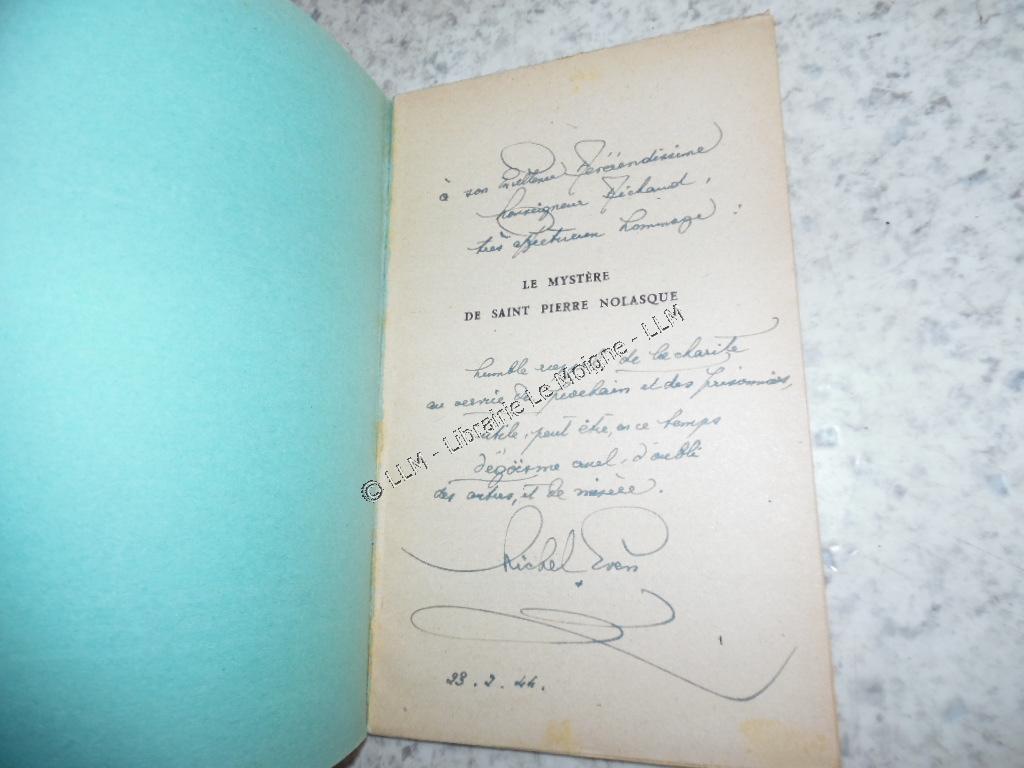 à son Excellence Révérendissime
Monseigneur Richaud,
très affectueux hommage :
LE MYSTÈRE
DE SAINT PIERRE NOLASQUE
humble de la charité
au service du prochain et des prisonniers,
utile, peut être, en ce temps
d'égoïsme cruel, d'oubli
des autres, et de misère.
© LLM - Librairie Le Moigne - LLM
Michel Even
23.2.44.